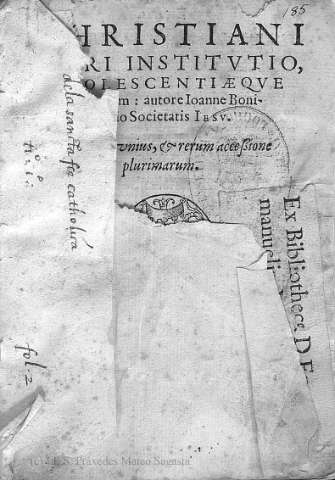 185
HRISTIANI
RI INSTITVTIO,
OLESCENTIÆQVE
m: autore Ioanne Boni-
io Societatis IESV.
unius, & rerum accessione
plurimarum.
dela sancta fe catholica
fol 2
Ex Bibliotheca D. F
manueli
(c) J. S. Práxedes Mateo Sagasta